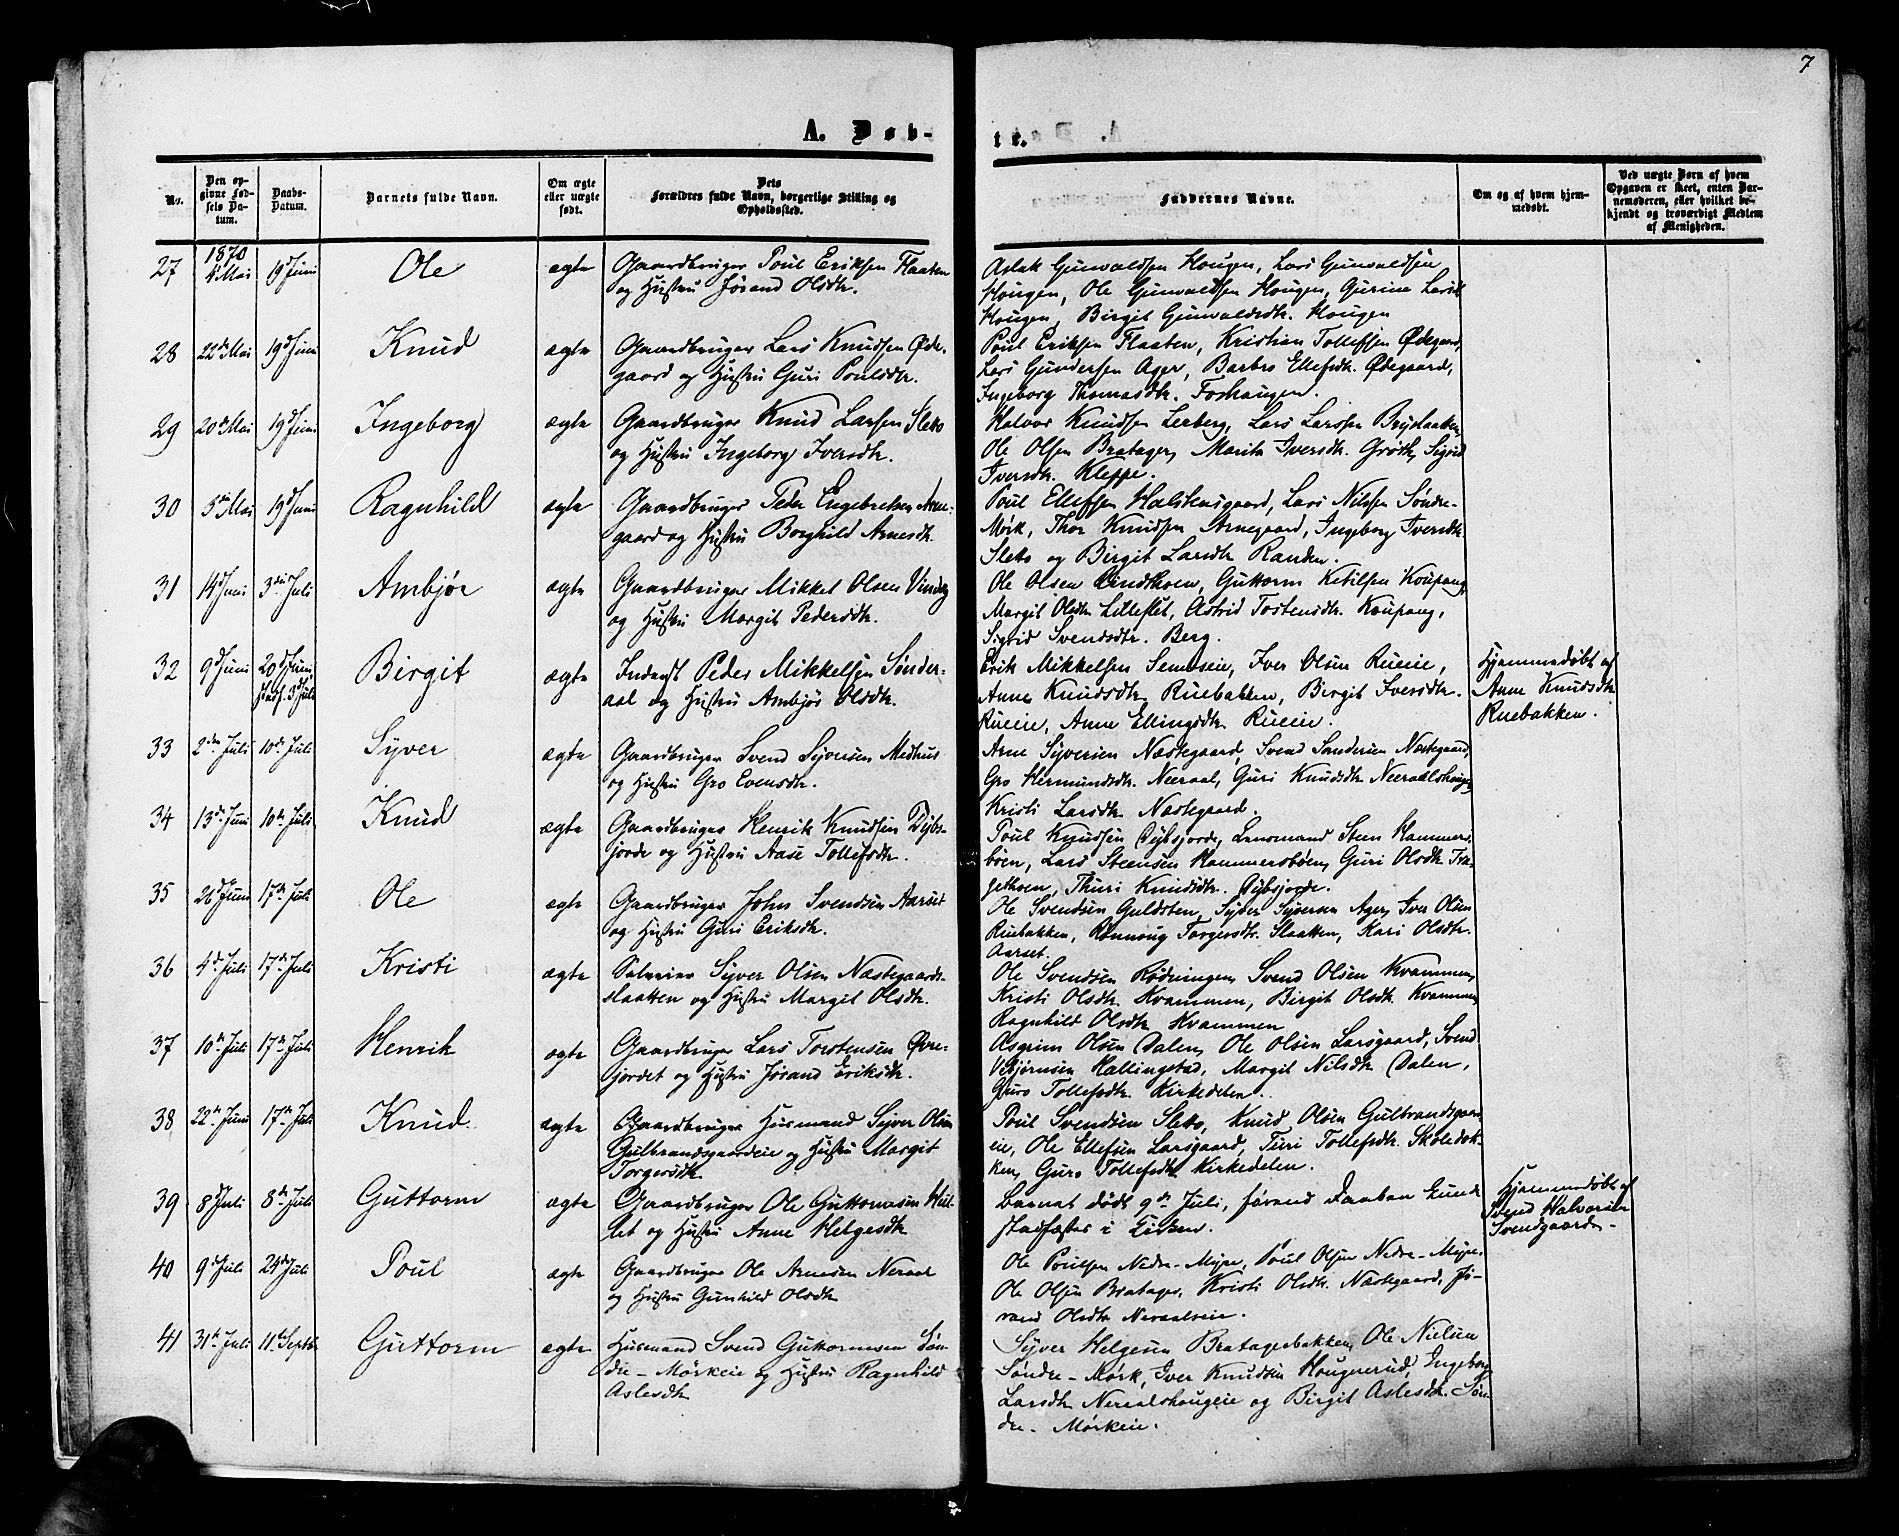 7
A. Døb-
te.
No.
Den op-
givne Fød-
sels Da-
tum.
Daabs-
Datum.
Barnets fulde Navn.
Om ægte
eller uægte
født.
Dets
Forældres fulde Navn, borgerlige Stilling og
Opholdssted.
Faddernes Navne.
Om og af hvem hjem-
medøbt.
Ved uægte Børn af hvem
Opgaven er skeet, enten Bar-
nemoderen, eller hvilket be-
kjendt og troværdigt Medlem
af Menigheden.
1870
27 4 Mai 19d Juni Ole ægte Gaardbruger Poul Eriksen Flaaten
og Hustru Jørand Olsdtr.
Aslak Gunvaldsen Hougen, Lars Gunvaldsen
Hougen, Ole Gunvaldsen Hougen, Gurine Larsdtr
Hougen, Birgit Gunvaldsdtr. Hougen
28 22de Mai 19d Juni Knud ægte Gaardbruger Lars Knudsen Øde-
gaard og Hustru Guri Poulsdtr.
Poul Eriksen Flaaten, Kristian Tollefsen Ødegaard,
Lars Gundersen Ager, Barbro Ellefsdtr. Ødegaard,
Ingeborg Thomasdtr. Forhaugen.
29 20de Mai 19d Juni Ingeborg ægte Gaardbruger Knud Larsen Sleto
og Hustru Ingeborg Iversdtr.
Halvor Knudsen Lerberg, Lars Larsen
Ole Olsen Bratager, Marit Iversdtr. Grøth, Sigrid
Iversdtr. Kleppe.
30 5te Mai 19d Juni Ragnhild ægte Gaardbruger Peder Engebretsen Arne-
gaard og Hustru Borghild Arnesdtr.
Poul Ellefsen Halstensgaard, Lars Nilsen Søndre-
Mørk, Thor Knudsen Arnegaard, Ingeborg Iversdtr
Sleto og Birgit Larsdtr Randen.
31 14d Juni 3die Juli Ambjør ægte Gaardbruger Mikkel Olsen Vindeg
og Hustru Margit Pedersdtr.
Ole Olsen Lindskoen, Guttorm Ketilsen Koupang,
Margit Olsdtr Lilleslet, Astrid Tostensdtr. Koupang,
Sigrid Svendsdtr. Berg.
32 9d Juni 20d Juni
stadf. 3d Juli Birgit ægte Inderst Peder Mikkelsen Sønder-
aal og Hustru Ambjør Olsdtr.
Erik Mikkelsen Semseie, Iver Olsen Rueeie,
Anne Knudsdtr. Ruebakken, Birgit Iversdtr.
Rueeie, Anne Ellingsdtr. Rueeie.
Hjemmedøbt af
Anne Knudsdtr
Ruebakken.
33 2den Juli 10de Juli Syver ægte Gaardbruger Svend Syversen Medhus
og Hustru Gro Evensdtr.
Arne Syversen Næstegaard, Svend Sandersen Næstegaard,
Gro Hermundsdtr. Neeraal, Guri Knudsdtr Neeraalshougen,
Kristi Larsdtr. Næstegaard.
34 13de Juni 10de Juli Knud ægte Gaardbruger Henrik Knudsen Dybs-
jorde og Hustru Aase Tollefsdtr.
Poul Knudsen Dybsjorde, Lensmand Steen Hammers-
bøen, Lars Steensen Hammersbøen, Guri Olsdtr.
Thuri Knudsdtr. Dybsjorde.
35 26d Juni 17de Juli Ole ægte Gaardbruger John Svendsen Aarset
og Hustru Guri Eriksdtr.
Ole Svendsen Guldsten, Syver Syversen Ager, Iver Olsen
Ruebakken, Rønnoug Torgersdtr. Slaatten, Kari Olsdtr.
Aarset.
36 4d Juli 17de Juli Kristi ægte Selveier Syver Olsen Næstegaards-
slaatten og Hustru Margit Olsdtr.
Ole Svendsen Rødningen, Svend Olsen Kvammen,
Kristi Olsdtr. Kvammen, Birgit Olsdtr Kvammen,
Ragnhild Olsdtr Kvammen
37 10de Juli 17de Juli Henrik ægte Gaardbruger Lars Torstensen Øvre-
jordet og Hustru Jørand Eriksdtr.
Asgrim Olsen Dalen, Ole Olsen Larsgaard, Svend
Vebjørnsen Hallingstad, Margit Nilsdtr Dalen,
Guro Tollefsdtr. Kirkedelen.
38 22de Juni 17de Juli Knud ægte Gaardbruger Husmand Syver Olsen
Gulbrandsgaardeie og Hustru Margit
Torgersdtr
Poul Svendsen Sleto, Knud Olsen Gulbrandsgaard-
eie, Ole Ellefsen Larsgaard, Turi Tollefsdtr. Skolebak-
ken, Guro Tollefsdtr Kirkedelen.
39 8d Juli 8de Juli Guttorm ægte Gaardbruger Ole Guttormsen
og Hustru Anne Helgesdtr
Barnet døde 9de Juli, førend Daaben kunde
stadfæstes i Kirken.
Hjemmedøbt af
Svend Halvorsen
Svendgaarden
40 9d Juli 24d Juli Poul ægte Gaardbruger Ole Arnesen Neraal
og Hustru Gunhild Olsdtr
Ole Poulsen Nedre-Myre, Poul Olsen Nedre-Myre,
Ole Olsen Bratager, Kristi Olsdtr. Næstegaard, Jø-
rand Olsdtr Neraalseie.
41 31te Juli 11te Septbr Guttorm ægte Husmand Svend Guttormsen Søn-
dre-Mørkeie og Hustru Ragnhild
Aslesdtr
Syver Helgesen Bratagerbakken, Ole Nielsen
Søndre-Mørk, Iver Knudsen Hougnerud, Ingeborg
Larsdtr Neraalshougeie og Birgit Aslesdtr. Søn-
dre-Mørkeie.